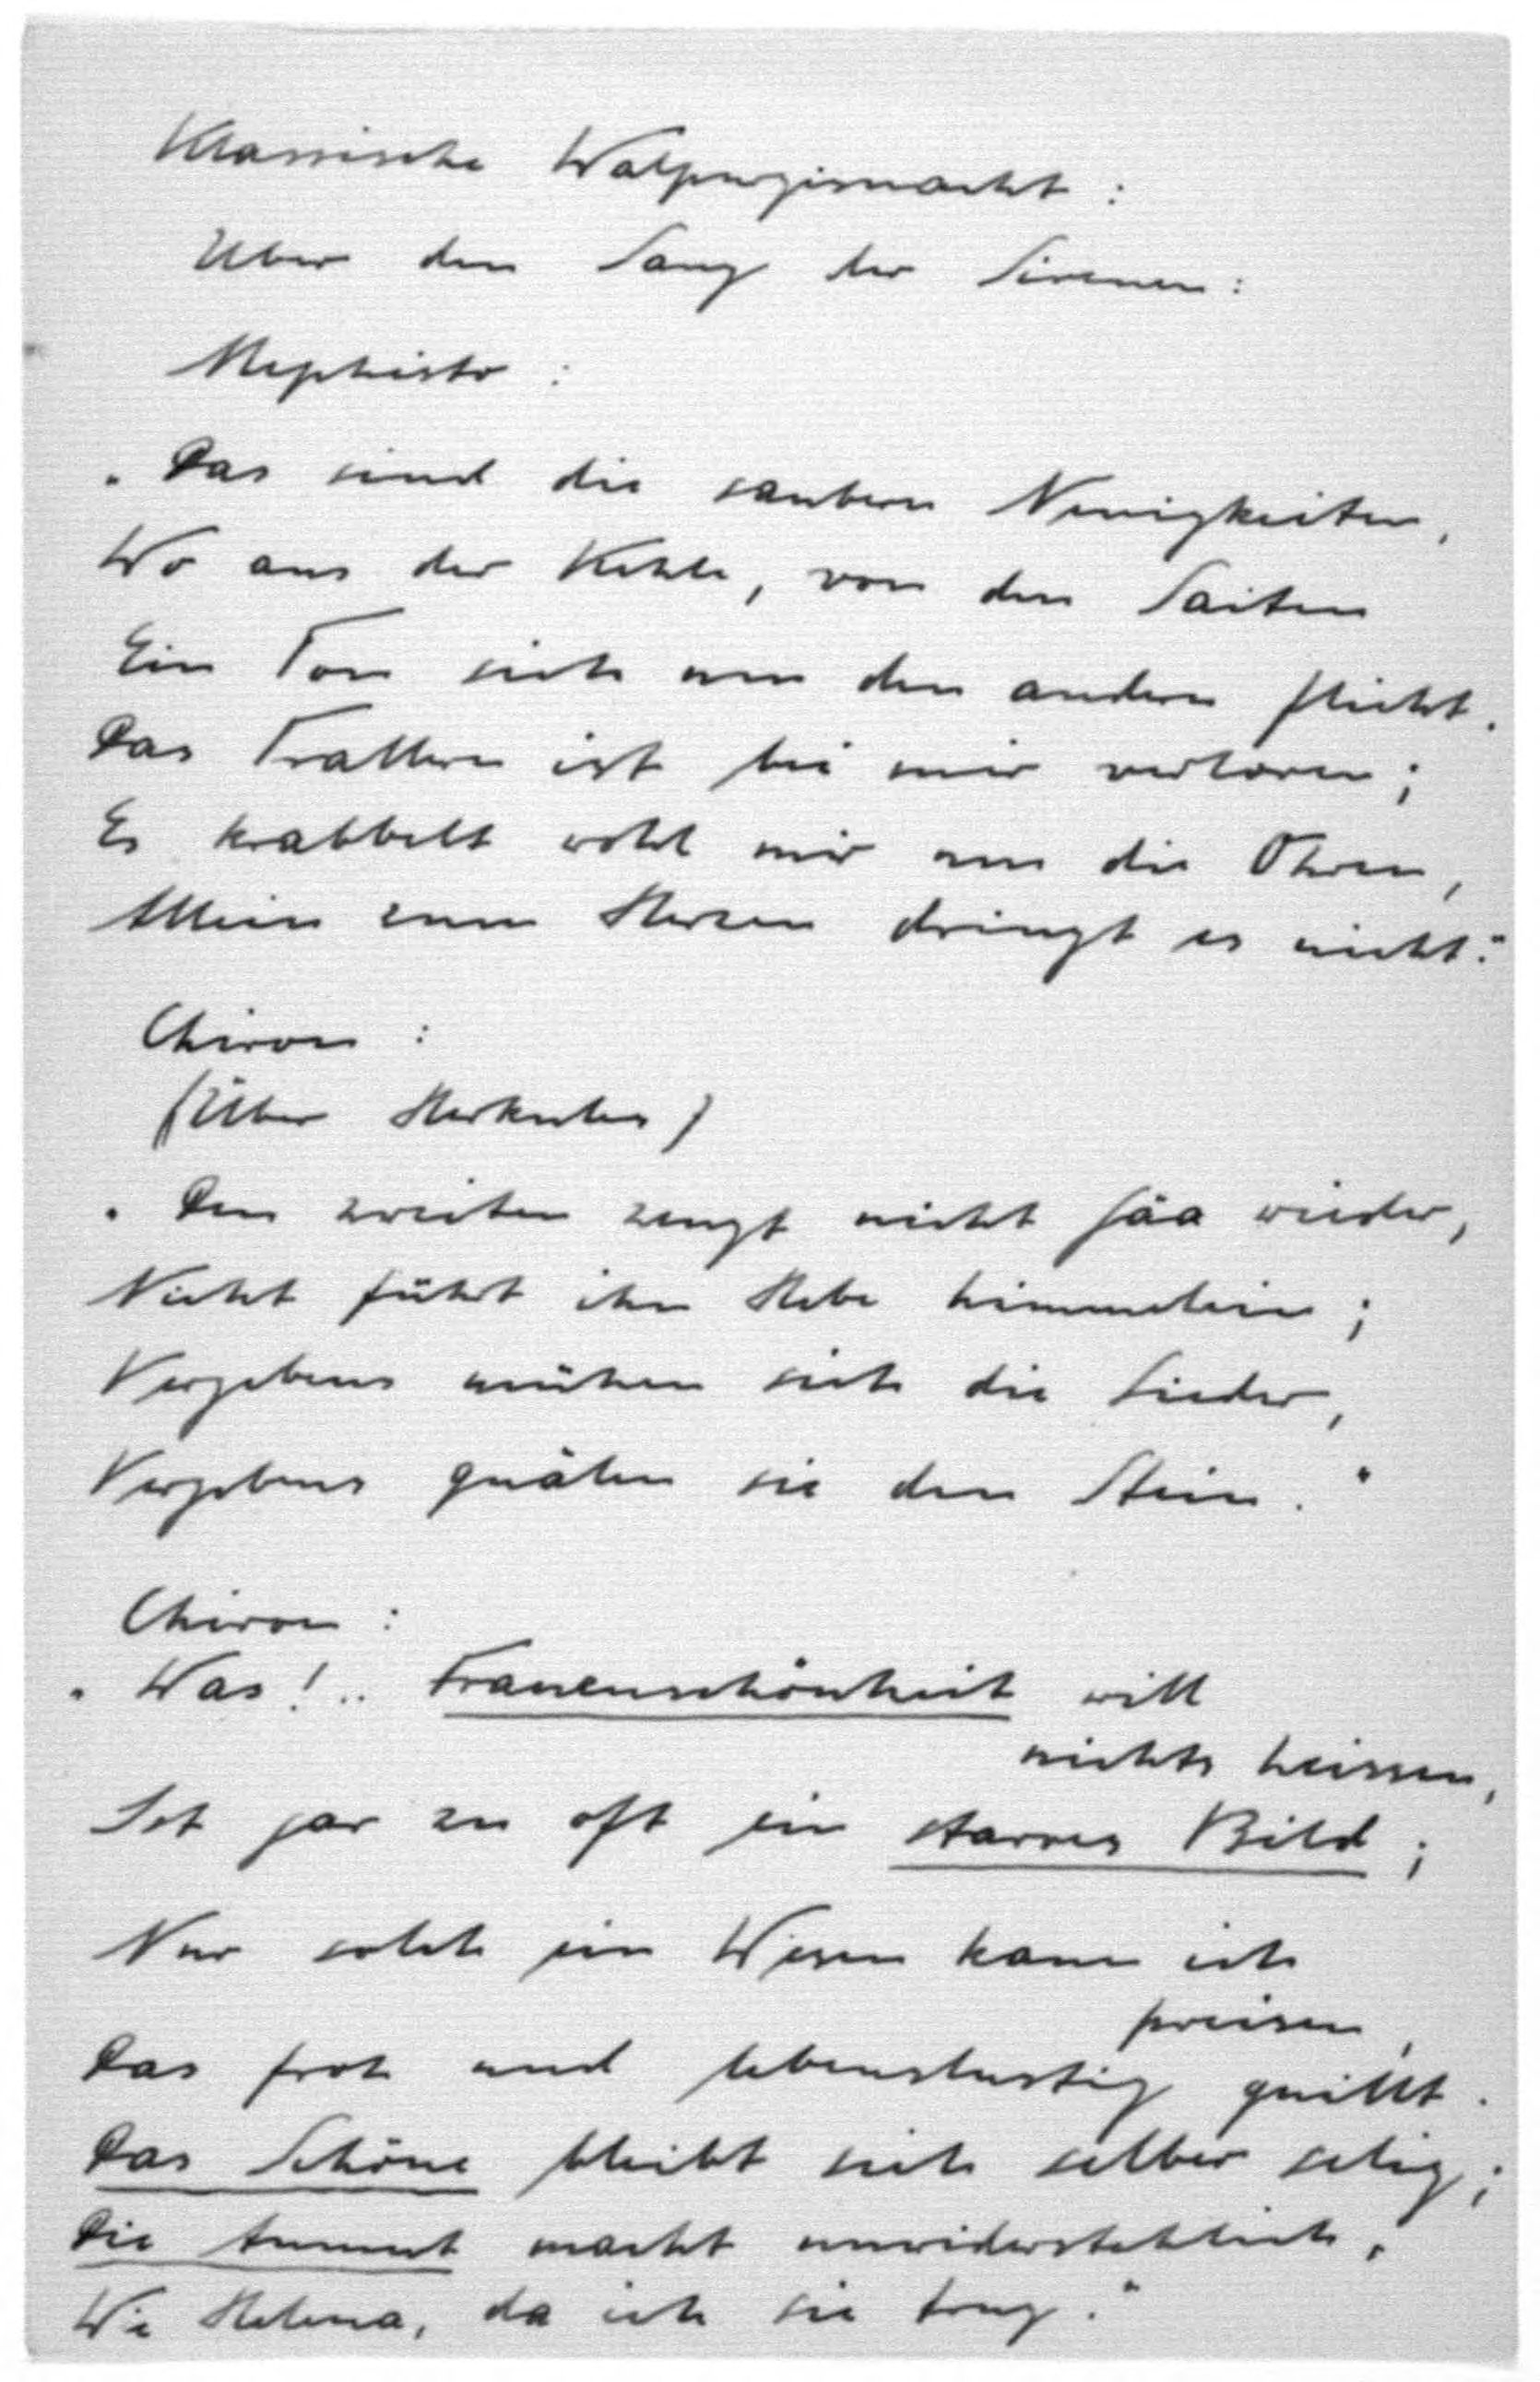 Klassische Walpurgisnacht :
Über den Sang der Sirenen :
Mephisto :
„Das sind die saubern Neuigkeiten,
Wo aus der Kehle, von den Saiten
Ein Ton sich um den andern flicht.
Das Trallern ist bei mir verloren ;
Es krabbelt wohl mir um die Ohren,
Allein zum Herzen dringt es nicht."
Chiron :
(Über Herkules)
„Den zweiten zeugt nicht Gäa wieder,
Nicht führt ihn Hebe himmelein ;
Vergebens mühen sich die Lieder,
Vergebens quälen sie den Stein."
Chiron :
„Was! .. Frauenschönheit will
nichts heissen,
Ist gar zu oft ein starres Bild ;
Nur solch ein Wesen kann ich
preisen,
Das froh und lebenslustig quillt.
Das Schöne bleibt sich selber selig ;
Die Anmut macht unwiderstehlich,
Wie Helena, da ich sie trug."